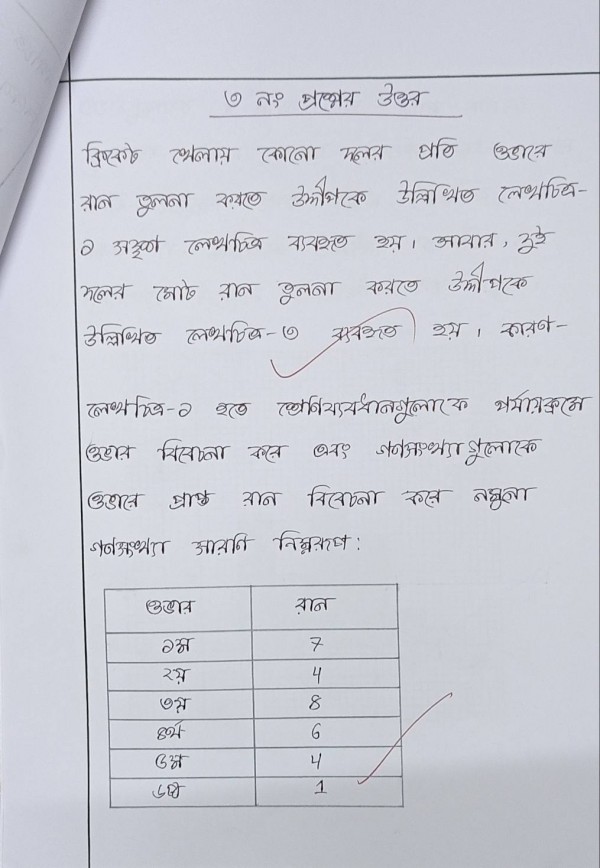 ৩ নং প্রশ্নের উত্তর
ক্রিকেট খেলায় কোনো দলের প্রতি ওভারে
রান তুলনা করতে উদ্দীপকে উল্লিখিত লেখচিত্র-
১ সদৃশ লেখচিত্র ব্যবহৃত হয়। আবার, দুই
দলের মোট রান তুলনা করতে উদ্দীপকে
উল্লিখিত লেখচিত্র-৩ ব্যবহৃত হয়। কারণ-
লেখচিত্র-১ হতে শ্রেণিব্যবধানগুলোকে পর্যায়ক্রমে
ওভার বিবেচনা করে এবং গণসংখ্যাগুলোকে
ওভারে প্রাপ্ত রান বিবেচনা করে নমুনা
গণসংখ্যা সারণি নিম্নরূপ:
ওভার রান
১ম 7
২য় 4
৩য় 8
৪র্থ 6
৫ম 4
৬ষ্ঠ 1